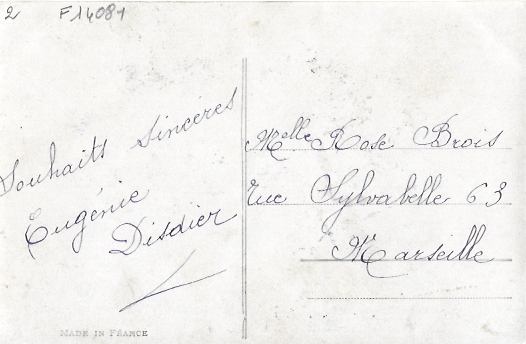 2 F14081
Souhaits sincères
Eugénie
Disdier
Melle Rose Brois
rue Sylvabelle 63
Marseille
MADE IN FRANCE